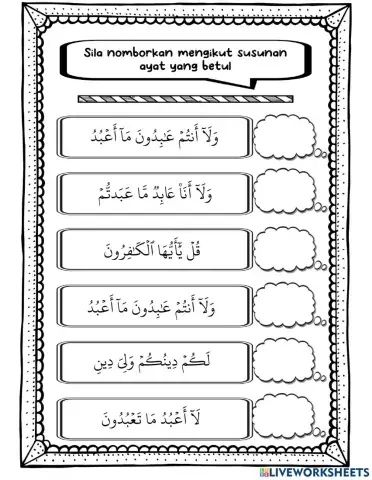 Sila nomborkan mengikut susunan
ayat yang betul
وَلَآ أَنتُمۡ عَٰبِدُونَ مَآ أَعۡبُدُ
وَلَآ أَنَا۠ عَابِدٞ مَّا عَبَدتُّمۡ
قُلۡ يَٰٓأَيُّهَا ٱلۡكَٰفِرُونَ
وَلَآ أَنتُمۡ عَٰبِدُونَ مَآ أَعۡبُدُ
لَكُمۡ دِينُكُمۡ وَلِيَ دِينِ
لَآ أَعۡبُدُ مَا تَعۡبُدُونَ
LIVEWORKSHEETS